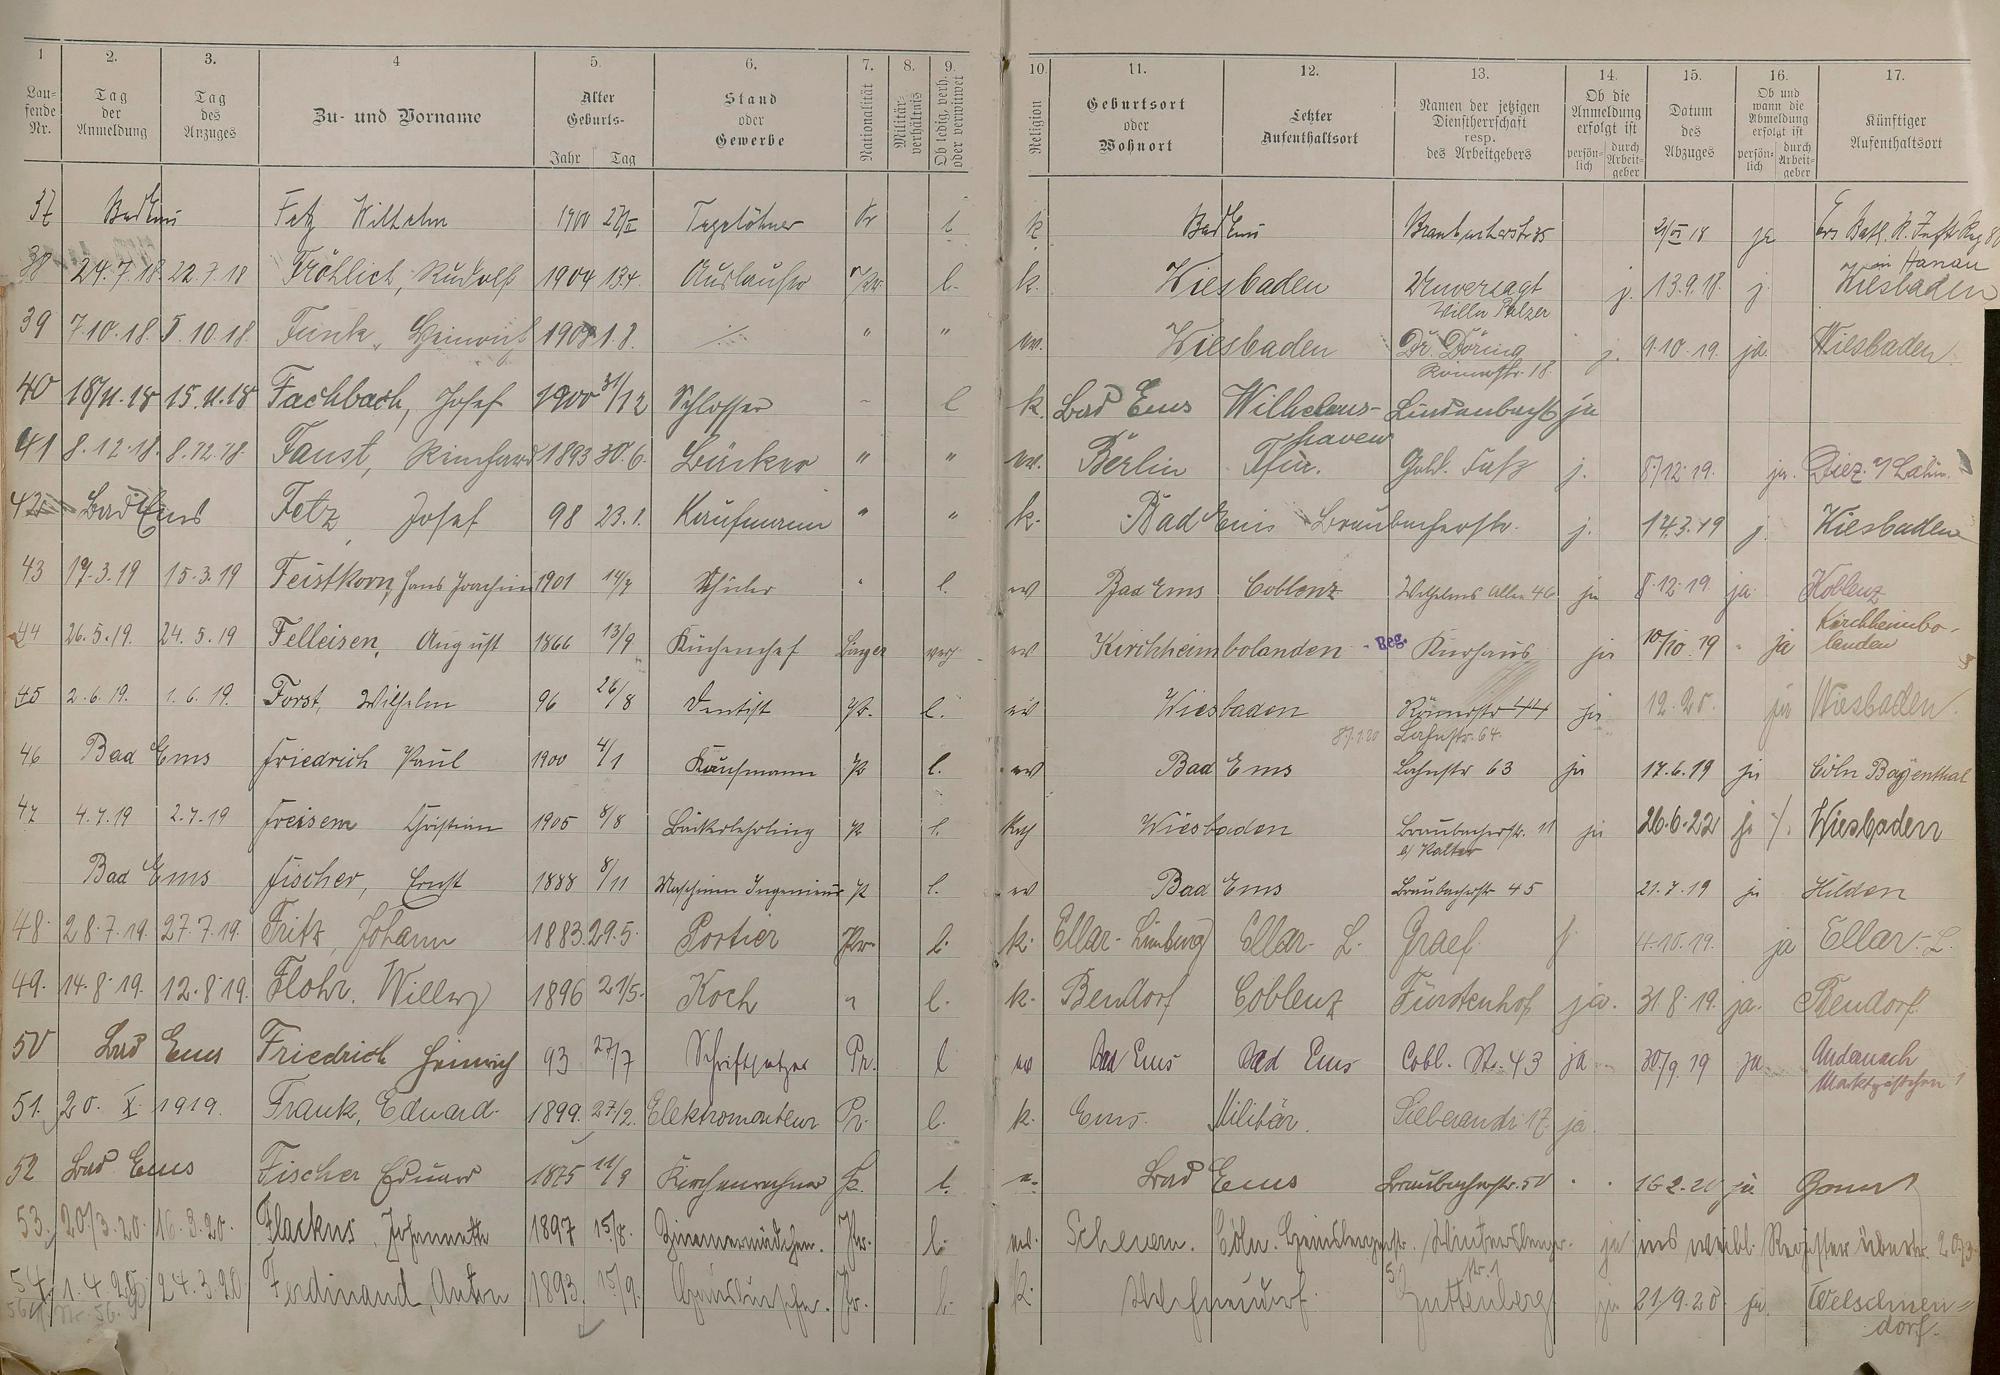 1 2. 3. 4 5. 6. 7. 8. 9. 10. 11. 12. 13. 14. 15. 16. 17.
Lau-
fende
Nr.
Tag
der
Anmeldung
Tag
des
Anzuges
Zu- und Vorname
Alter
Geburts-
Jahr Tag
Stand
oder
Gewerbe
Nationalität
Militär-
verhältnis
Ob ledig, verh.
oder verwitwet
Religion
Geburtsort
oder
Wohnort
Letzter
Aufenthaltsort
Namen der jetzigen
Dienstherrschaft
resp.
des Arbeitgebers
Ob die
Anmeldung
erfolgt ist
persön-
lich
durch
Arbeit-
geber
Datum
des
Abzuges
Ob und
wann die
Abmeldung
erfolgt ist
persön-
lich
durch
Arbeit-
geber
Künftiger
Aufenthaltsort
37 Bad Ems Fetz Wilhelm 1900 Tagelöhner Pr l k Bad Ems Braubacherstr 35 18 ja Ers Batl. R. Inft Reg 80
in Hanau
38 24.7.18. 22.7.18 Fröhlich, Rudolf 1904 13.4. Auslaufer l. k. Wiesbaden Unversagt j. 13.9.18. j. Wiesbaden
Villa Balzer
39 7.10.18. 5.10.18. Funk, Heinrich 1.8. " " ev. Wiesbaden Dr. Döring j. 9.10.19. ja. Wiesbaden
Römerstr. 18.
40 18/11.18 15.11.18 Fachbach, Josef 1900 31/12 Schlosser l k. Bad Ems Wilhelms- Lindenbach ja
haven
41 8.12.18. 8.12.18. Faust, Reinhard 1893 30.6. Bäcker " " ev. Berlin j. 8/12.19. ja. Diez a/Lahn.
42 Bad Ems Fetz, Josef 98 23.1. Kaufmann " " k. Bad Ems Braubacherstr. j. 14.3.19 j. Wiesbaden
43 17.3.19 15.3.19 Feistkorn, Hans Joachim 1901 14/7 Schüler l. ev Bad Ems Coblenz Wilhelms Allee 46 ja 8.12.19. ja. Koblenz
44 26.5.19. 24.5.19 Felleisen, August 1866 13/9 Küchenchef Bayer verh ev Kirchheimbolanden Reg. Kurhaus ja 10/10.19 ja Kirchheimbo-
landen
45 2.6.19. 1.6.19. Forst, Wilhelm 96 26/8 Dentist pr. l. ev Wiesbaden Römerstr 44 ja 12.20. ja Wiesbaden.
8/1.20 Lahnstr. 64.
46 Bad Ems Friedrich Paul 1900 4/1 Kaufmann pr l. ev Bad Ems Lahnstr 63 ja 17.6.19 ja Cöln Bayenthal
47 4.7.19 2.7.19 Freisem Christian 1905 8/8 Bäckerlehrling pr l. Kath Wiesbaden Braubacherstr. 11 ja 26.6.22 ja Wiesbaden
b/ Kalter
Bad Ems Fischer, Ernst 1888 8/11 Maschinen Ingenieur pr l. ev Bad Ems Braubacherstr 45 21.7.19 ja Hilden
48. 28.7.19. 27.7.19. Fritz, Johann 1883. 29.5. Portier Pr. l. k. Ellar-Limburg Ellar-L. Graef. j. 4.10.19. ja Ellar-L.
49. 14.8.19. 12.8.19. Flohr, Willy 1896 21/5. Koch " l. k. Bendorf Coblenz Fürstenhof ja. 31.8.19. ja. Bendorf.
50 Bad Ems Friedrich Heinrich 93 27/7 Schriftsetzer Pr. l ev Bad Ems Bad Ems Cobl. Str. 43 ja 30/9.19 ja. Andernach
51. 20. X. 1919. Frank, Eduard. 1899. 27/2. Elektromonteur Pr. l. k. Ems. Militär. 17. ja.
52 Bad Ems Fischer Eduard 1875 11/9 l. Bad Ems Braubacherstr. 50 16.2.20 ja
53. 20/3.20. 16.3.20. Flackus, Johannette 1897 15/8. Zimmermädchen. Pr. l. ev. Scheuern. Cöln. Wintersberger. ja ins weibl. Register übertr. 20/3
54. 1.4.20 24.3.20 Ferdinand, Anton 1893. 15/9. Hausbursche. Pr. l. k. Guttenberg ja 21/9.20. ja. Welschneu-
dorf.